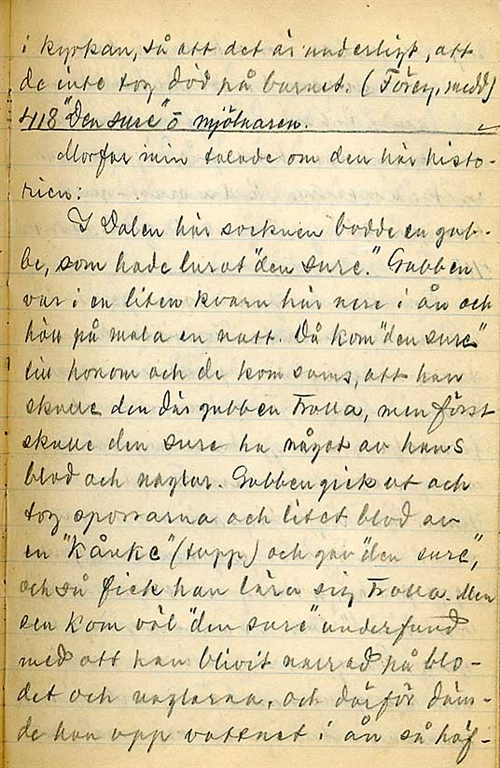 i kyrkan, så att det är underligt, att
de inte tog död på barnet. (Förey, medd)
418 "Den sure" o mjölnaren.
Morfar min talade om den här histo-
rien:
I Dalen här socknen bodde en gub-
be, som hade lurat "den sure." Gubben
var i en liten kvarn här nere i ån och
höll på mala en natt. Då kom "den sure"
till honom och de kom sams, att han
skulle den där gubben trolla, men först
skulle den sure ha något av hans
blod och naglar. Gubben gick ut och
tog sporrarna och litet blod av
en "Kånke" (tupp) och gav "den sure",
och så fick han lära sig trolla. Men
sen kom väl "den sure" underfund
med att han blivit narrad på blo-
det och naglarna, och därför däm-
de han opp vattnet i ån så höf-